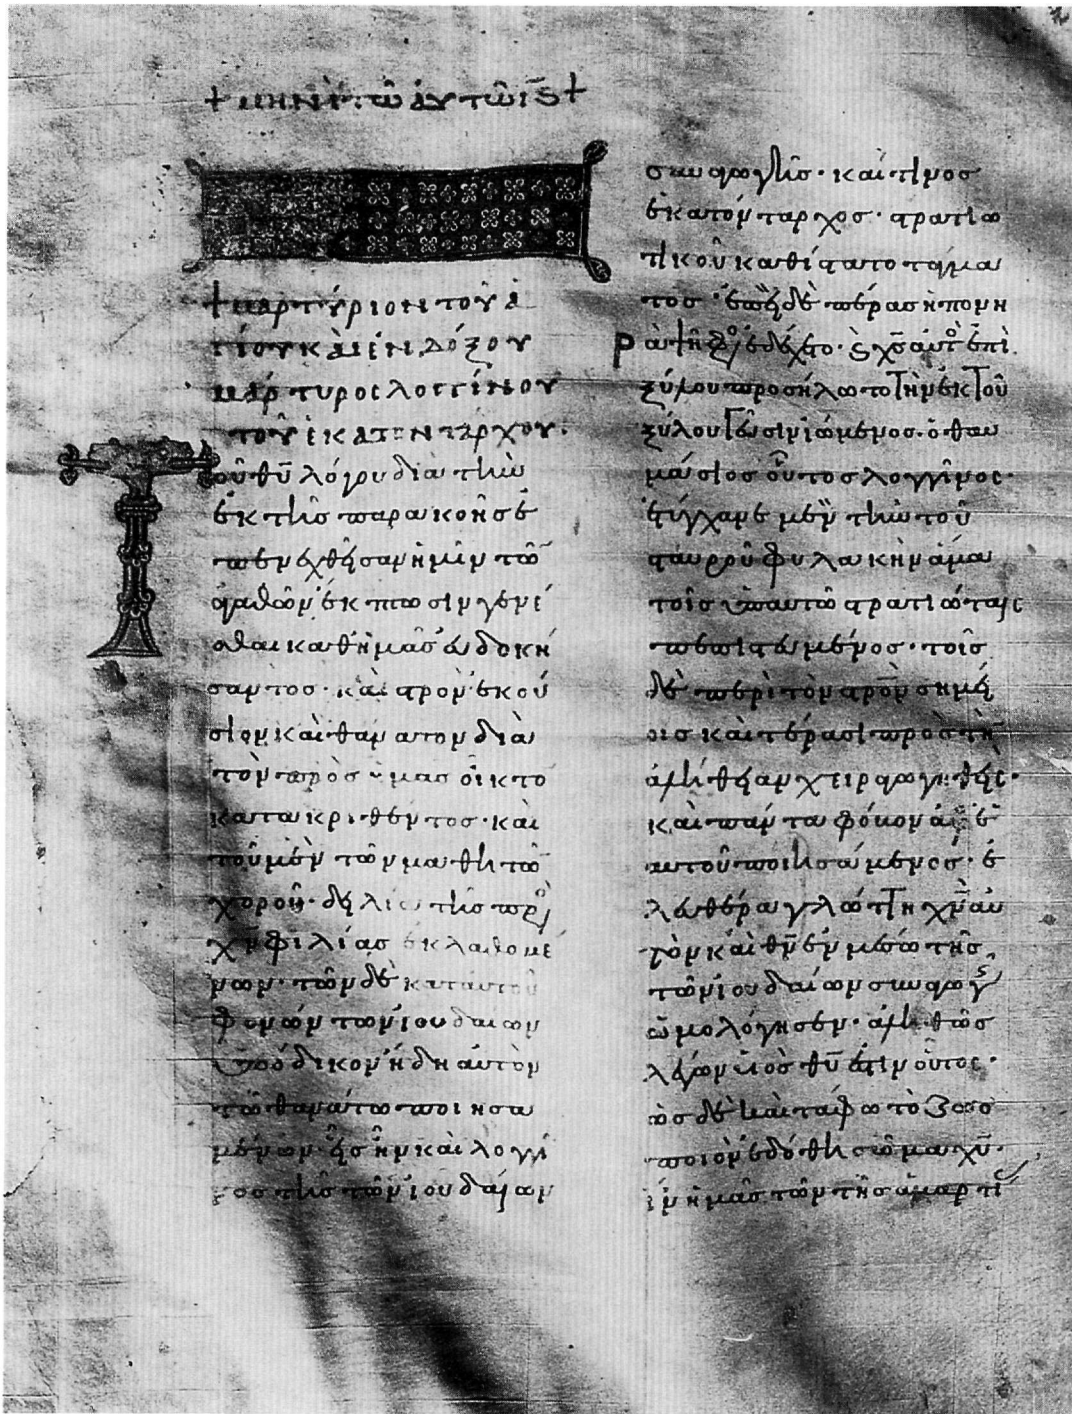 + μηνὶ τῶ αυτῶ ις +
+ μαρτύριον τοῦ ἁ
γίου καὶ ἐνδόξου
μάρτυρος λογγίνου
τοῦ ἑκατοντάρχου.
Τοῦ θυ λόγου διὰ τὴν
ἐκ τῆς παρακοῆς ἐ
πενεχθεῖσαν ἡμῖν τῶ
ἀγαθῶν ἔκπτωσιν γενέ
σθαι καθ ἡμᾶς εὐδοκή
σαντος· καὶ στρον ἑκού
σιον καὶ θάνατον διὰ
τὸν πρὸς ἡμᾶς οἶκτο
κατακριθέντος· καὶ
τοῦ μὲν τῶν μαθητῶ
χοροῦ· δειλία τῆς πρὸ
χν φιλίας ἐκλαθομέ
νων· τῶν δὲ κατ αυτοῦ
φονών τῶν ἰουδαίων
ὑπόδικον ἤδη αὐτὸν
τῶ θανάτω ποιησα
μένων· εἷς ἦν καὶ λογγῖ
νος τῆς τῶν ἰουδαίων
συναγωγῆς· καί τινος
ἑκατόνταρχος· στρατιω
τικοῦ καθίστατο τάγμα
τος·
ξύλου προσήλωτο τὴν ἐκ τοῦ
ξύλου
μάσιος οὗτος λογγῖνος·
ἐτύγχανε μὲν τὴν τοῦ
σταυροῦ φυλακὴν ἅμα
τοῖς ὑπ αυτῶ στρατιώταις
πεπιστευμένος· τοῖς
δὲ περὶ τὸν στρον σημεί
οις καὶ τέρασι πρὸς τὴν
ἀλήθειαν χειραγωγηθείς·
καὶ πάντα φόβον
αυτοῦ ποιησάμενος· ἐ
λευθέρα γλώττη χν αυ
τὸν καὶ θν ἐν μέσω τῆς
τῶν ἰουδαίων συναγωγ
ὡμολόγησεν· ἀληθῶς
λέγων υἱὸς θυ ἐστιν οὗτος·
ὡς δὲ καὶ ταφω τὸ ζωο
ποιὸν ἐδόθη σῶμα χυ·
ἵν ἡμᾶς τῶν τῆς ἁμαρτι